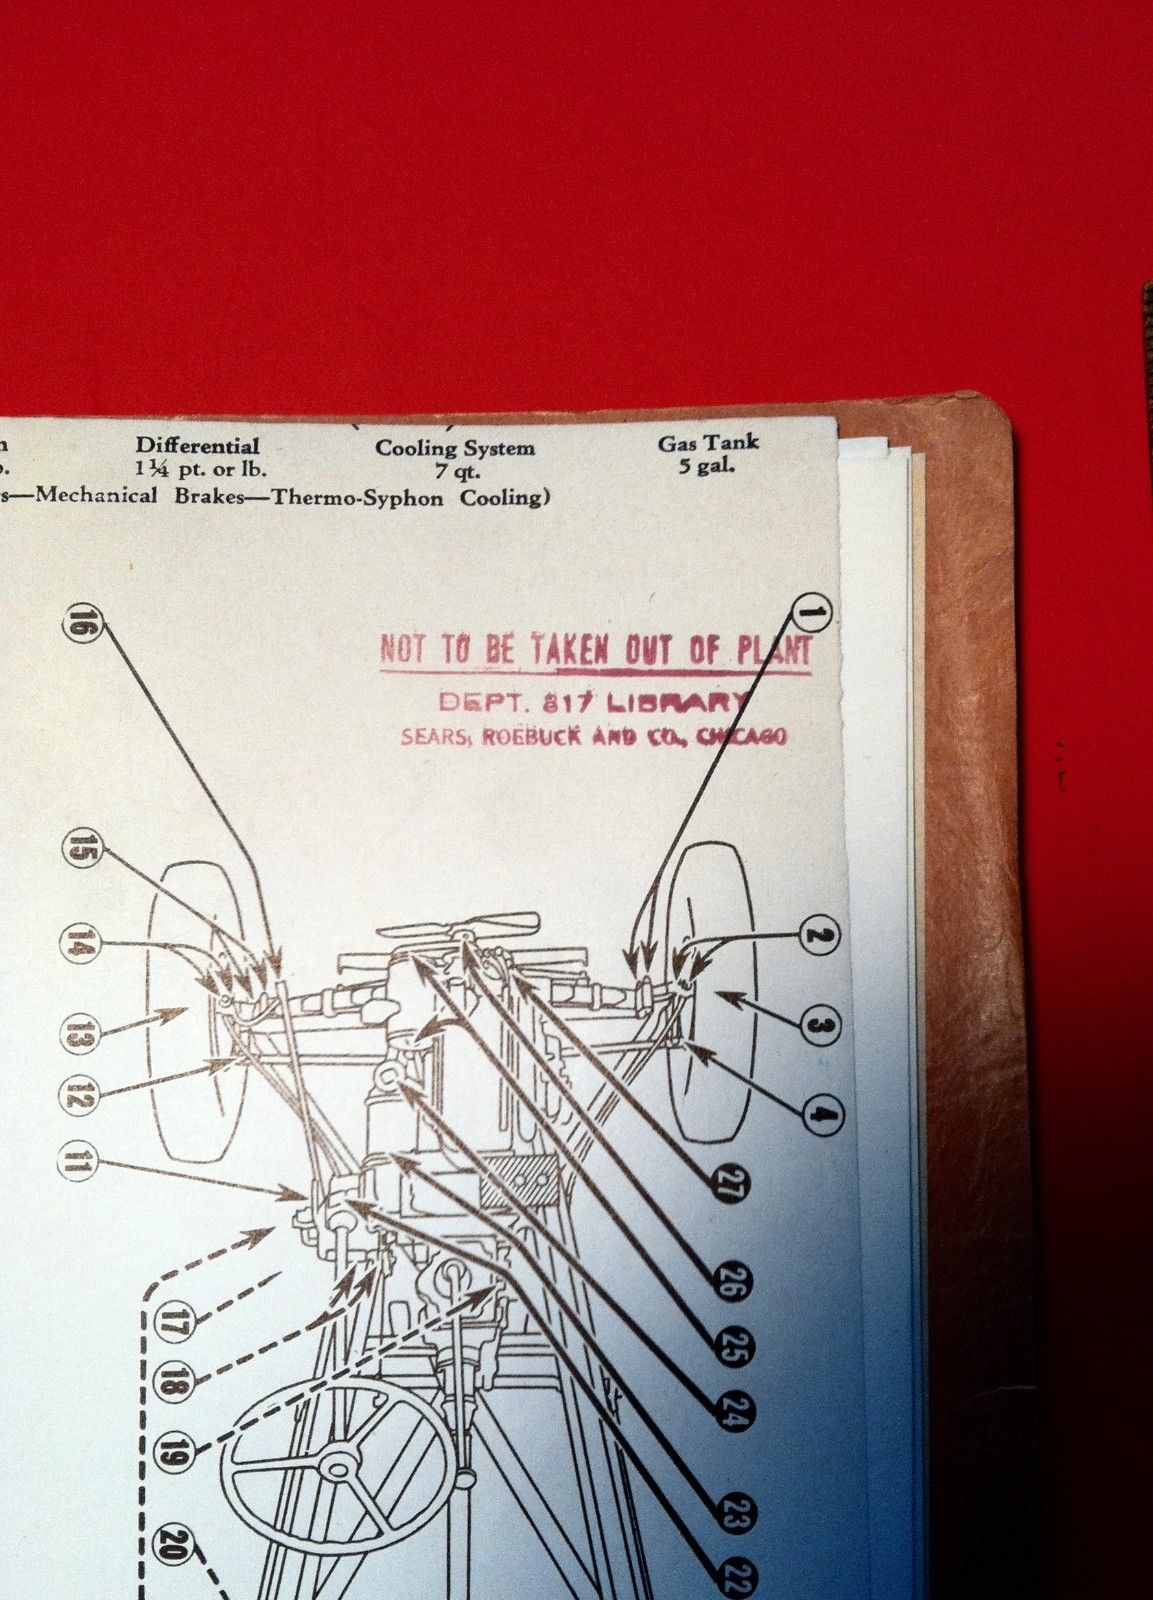 Differential Cooling System Gas Tank
1¼ pt. or lb. 7 qt. 5 gal.
—Mechanical Brakes—Thermo-Syphon Cooling)
NOT TO BE TAKEN OUT OF PLANT
DEPT. 817 LIBRARY
SEARS, ROEBUCK AND CO., CHICAGO
16
1
15
14
2
13
3
12
4
11
27
17
26
18
25
24
19
23
20
22